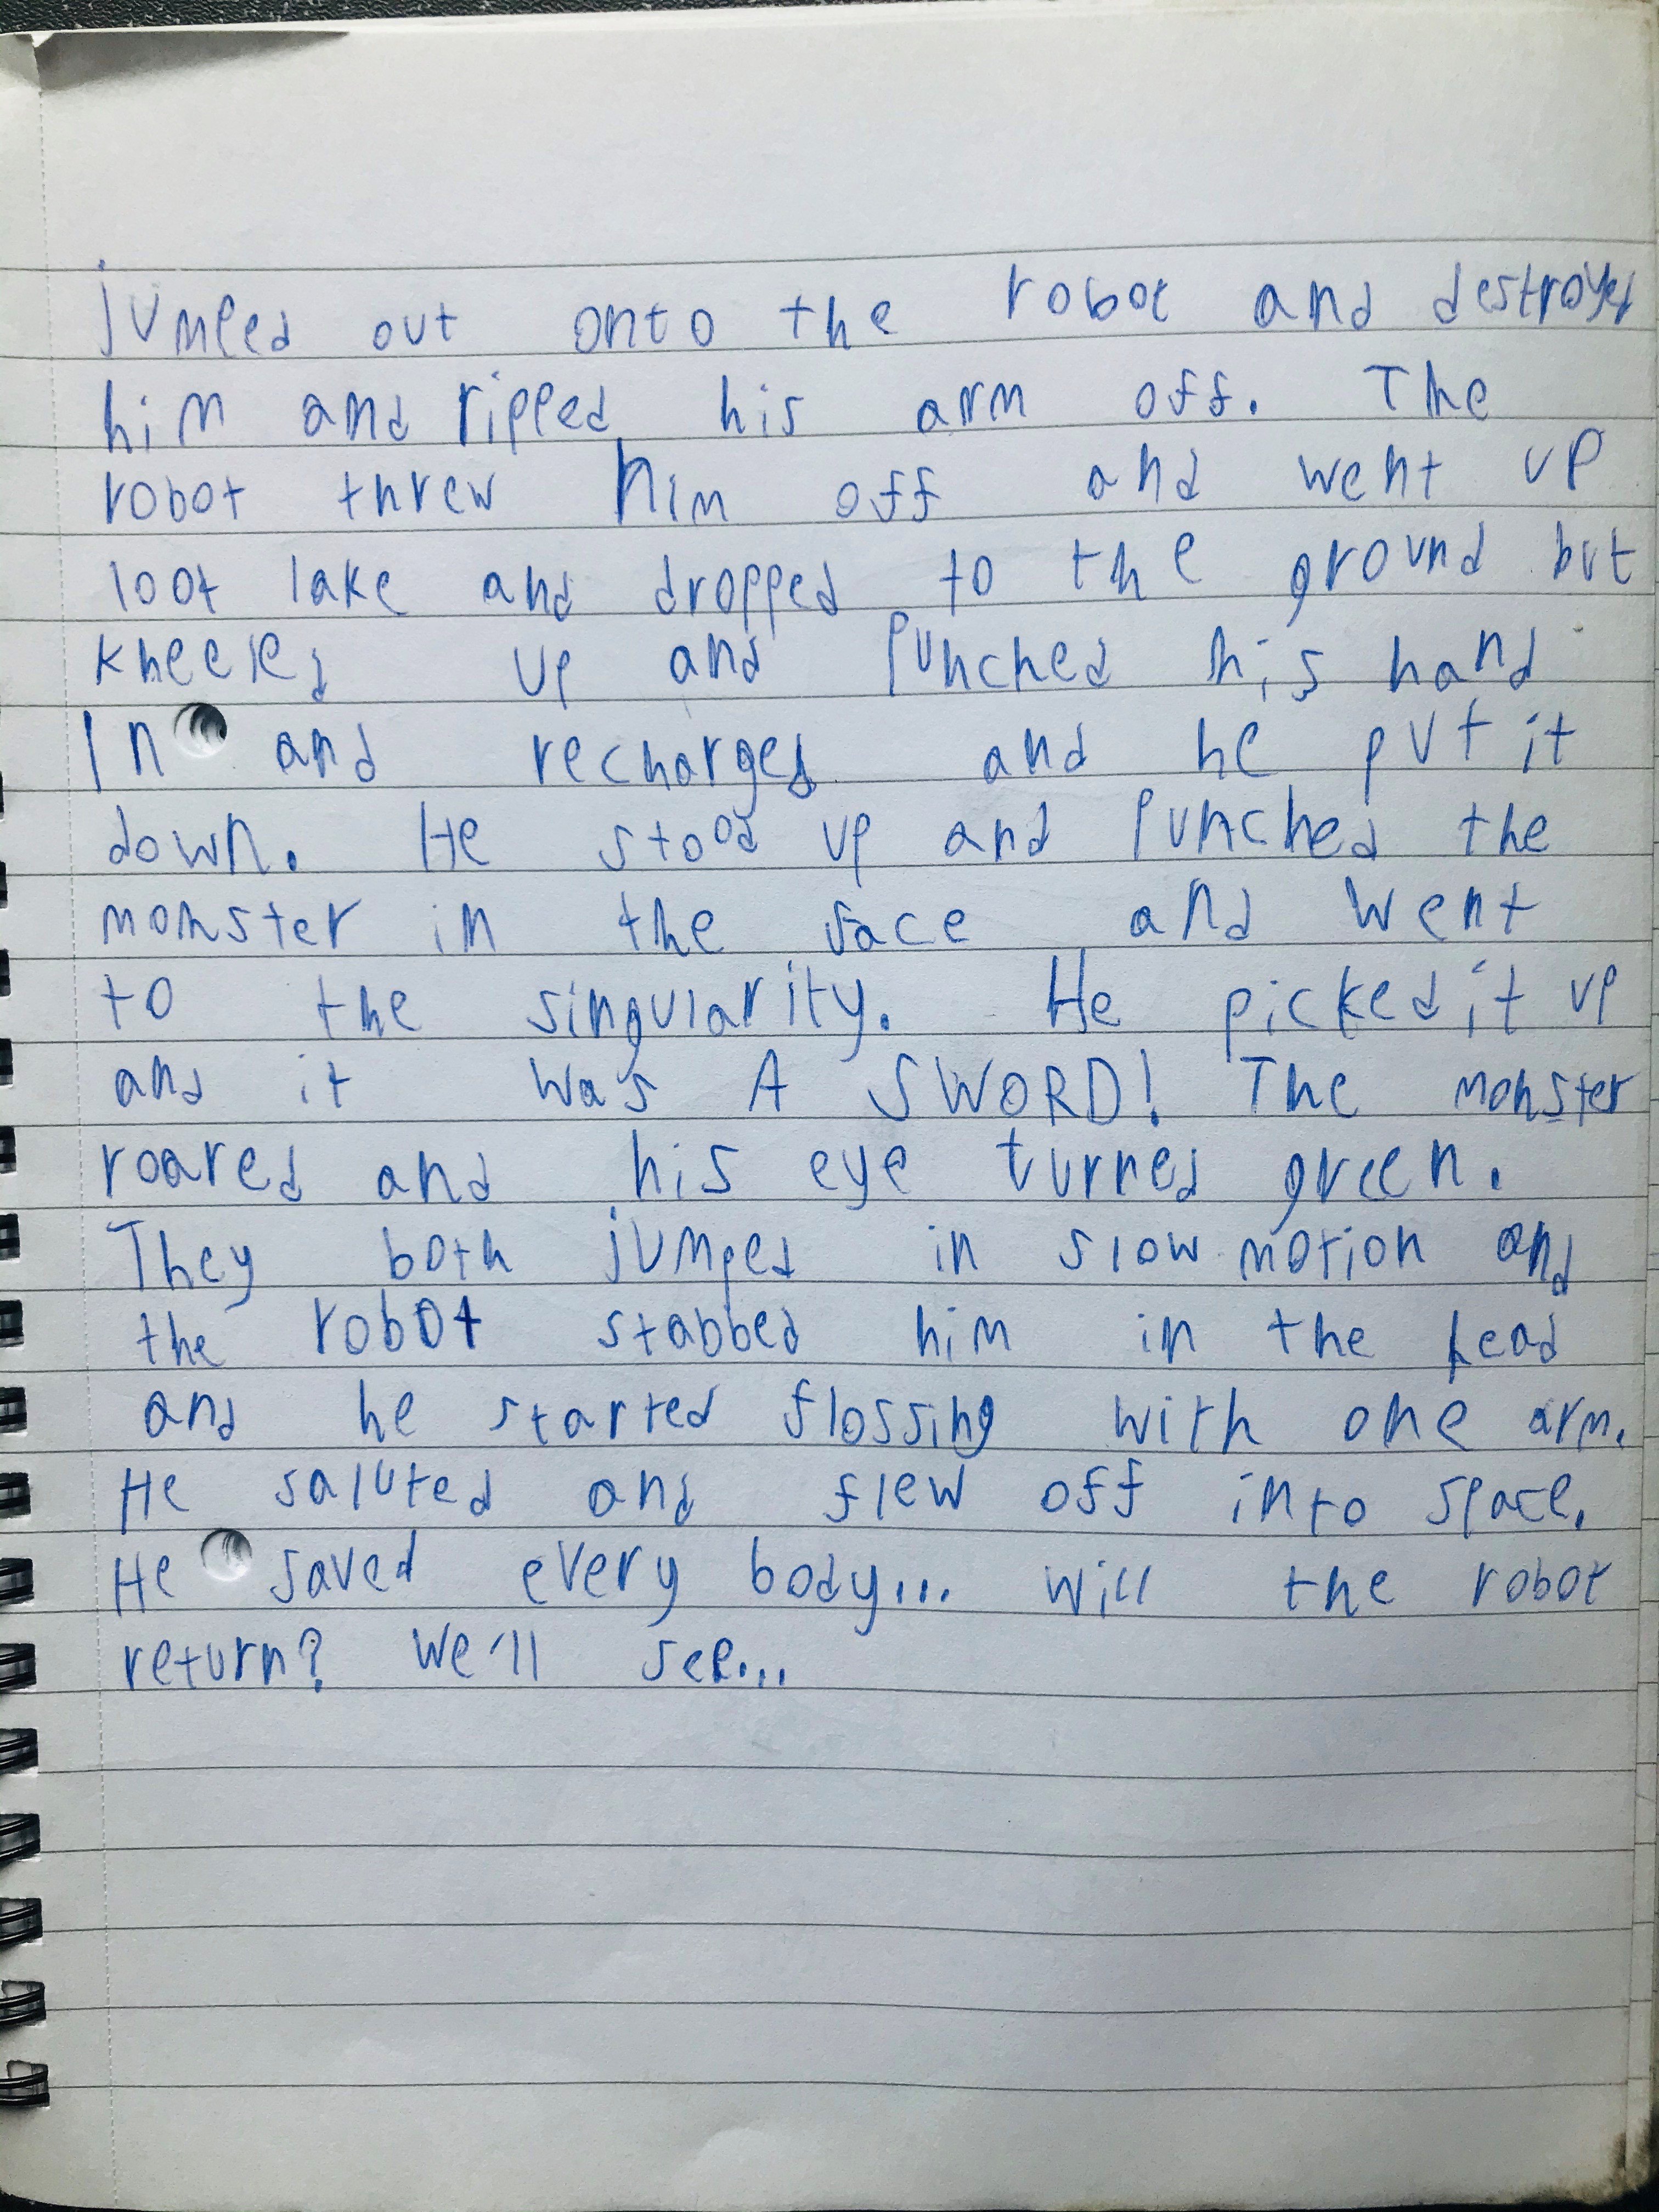 jumped out onto the robot and destroyed
him and ripped his arm off. The
robot threw him off and went up
loot lake and dropped to the ground but
kneeled up and punched his hand
In and recharged and he put it
down. He stood up and punched the
monster in the face and went
to the singularity. He picked it up
and it was A SWORD! The monster
roared and his eye turned green.
They both jumped in slow motion and
the robot stabbed him in the head
and he started flossing with one arm.
He saluted and flew off into space.
He saved every body... will the robot
return? We'll see...